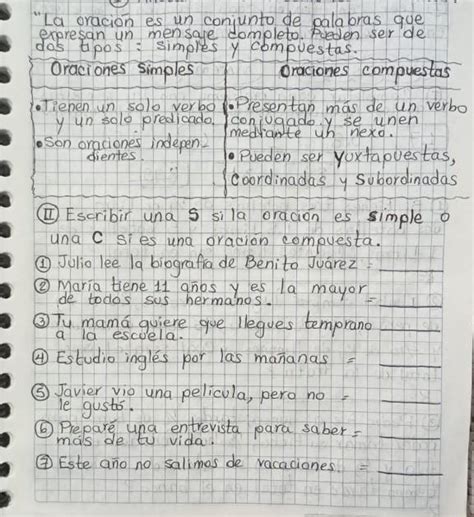 "La oración es un conjunto de palabras que
expresan un mensaje completo. Pueden ser de
dos tipos: simples y compuestas.
Oraciones simples
Oraciones compuestas
• Tienen un solo verbo
y un solo predicado.
• Son oraciones indepen-
dientes.
• Presentan más de un verbo
conjugado y se unen
mediante un nexo.
• Pueden ser yuxtapuestas,
coordinadas y subordinadas
II Escribir una S si la oración es simple o
una C si es una oración compuesta.
1 Julio lee la biografía de Benito Juárez =
2 María tiene 11 años y es la mayor
de todos sus hermanos. =
3 Tu mamá quiere que llegues temprano
a la escuela.
4 Estudio inglés por las mañanas =
5 Javier vio una película, pero no =
le gustó.
6 Preparé una entrevista para saber =
más de tu vida.
7 Este año no salimos de vacaciones. =